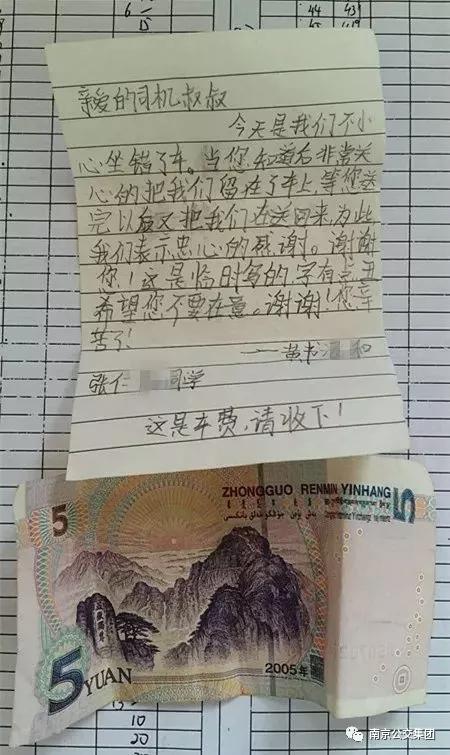 44 43
亲爱的司机叔叔
今天是我们不小
心坐错了车。当您知道后非常关
心的把我们留在了车上,等您送
完以后又把我们在送回来,为此
我们表示忠心的感谢。谢谢
您!这是临时写的,字有点丑
希望您不要在意。谢谢!您辛
苦了!
——黄书 和
张仁 同学
这是车费,请收下!
ZHONGGUO RENMIN YINHANG
5
5
5 YUAN
2005年
10
20
南京公交集团